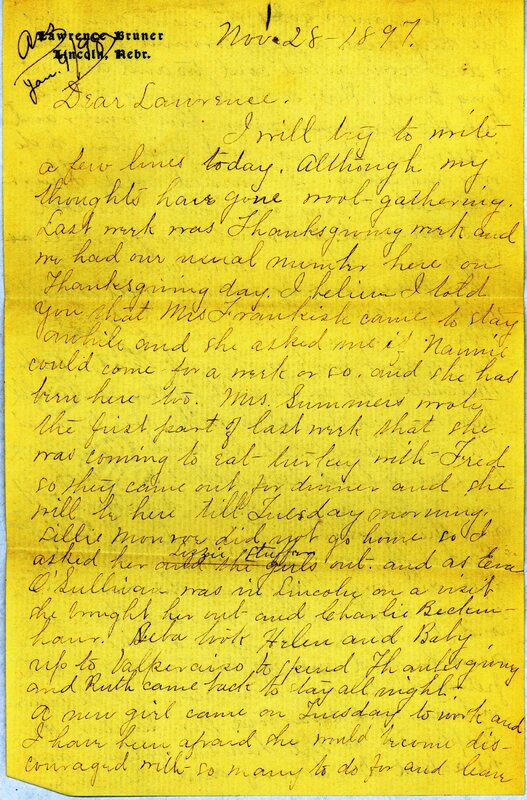 1
Lawrence Bruner
Lincoln, Nebr.
Ans
Jan. 9/98
Nov. 28-1897.
Dear Lawrence.
I will try to write
a few lines today. Although my
thoughts have gone wool-gathering.
Last week was Thanksgiving week and
we had our usual number here on
Thanksgiving day. I believe I told
you that Mrs Frankish came to stay
awhile and she asked me if Nannie
could come for a week or so. and she has
been here too. Mrs. Summers wrote
the first part of last week that she
was coming to eat turkey with Fred
so they came out for dinner and she
will be here till Tuesday morning.
Lillie Monroe did not go home so I
Lizzie
asked her and the girls out. and as Eva
O'Sullivan was in Lincoln on a visit
she brought her out and Charlie Beckin-
haur. Heba took Helen and Baby
up to Valparaiso to spend Thanksgiving
and Ruth came back to stay all night.
A new girl came on Tuesday to work and
I have been afraid she would become dis-
couraged with so many to do for and leave